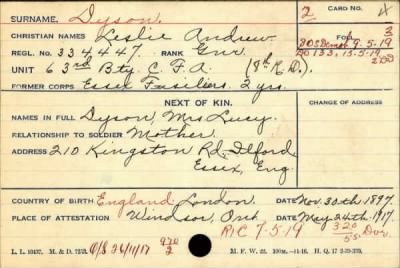 SURNAME, Dyson. 2 CARD NO. 4
CHRISTIAN NAMES Leslie Andrew FOR 3
REGL. NO. 334447. RANK Gnr S.O.S. Demob 9-5-19
UNIT 63rd Bty. C.F.A. (8th R.D.). DO 133, 13-5-19
FORMER CORPS Essex Fusiliers 2 yrs.
NEXT OF KIN. CHANGE OF ADDRESS
NAMES IN FULL Dyson, Mrs Lucy.
RELATIONSHIP TO SOLDIER Mother.
ADDRESS 210 Kingston Rd, Ilford,
Essex, Eng
COUNTRY OF BIRTH England London. DATE Nov. 30th 1897
PLACE OF ATTESTATION Windsor, Ont DATE May 24th 1917.
R/C 7-5-19 320
55 Dvr.
L. L. 10437. M. & D. O/S 26/11/17 970
2 M. F. W. 22. H. Q.